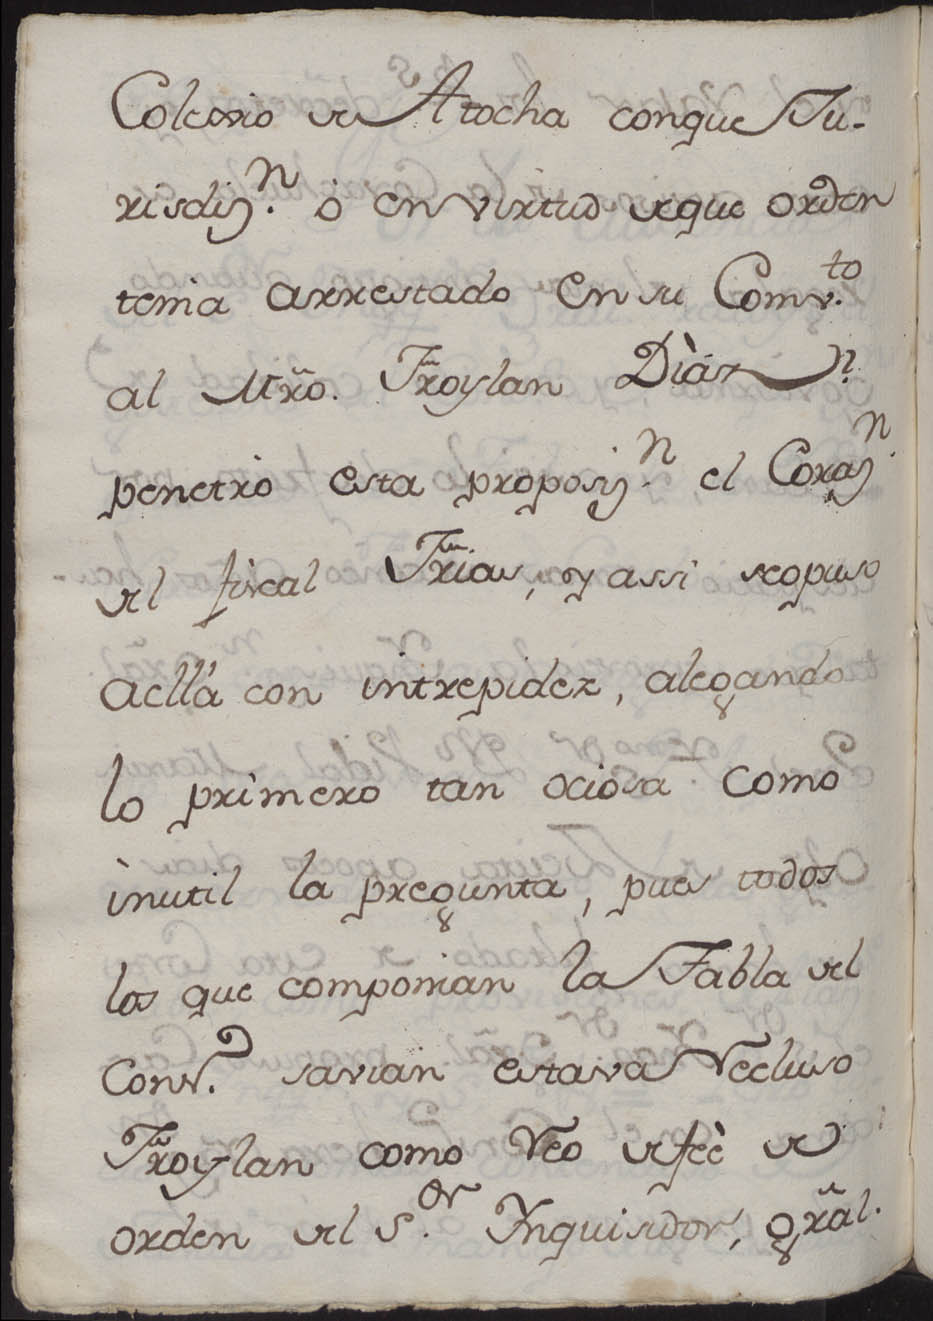 Colexio de Atocha conque Ju-
risdiz.n ò en virtud deque orden
tenia arrestado en su Comv.to
al Mr̃o. Fr̃oylan Diàz
penetrò esta proposiz.n el Coraz.n
del fiscal Frias, y assi seopuso
aellà con intrepidez, alegando
lo primero tan ociosa como
inutil la pregunta, pues todos
los que componian la Tabla del
Conv.o savian estava Recluso
Fr̃oylan como Reo defeè de
orden del S.or Ynquisidor, gr̃al.